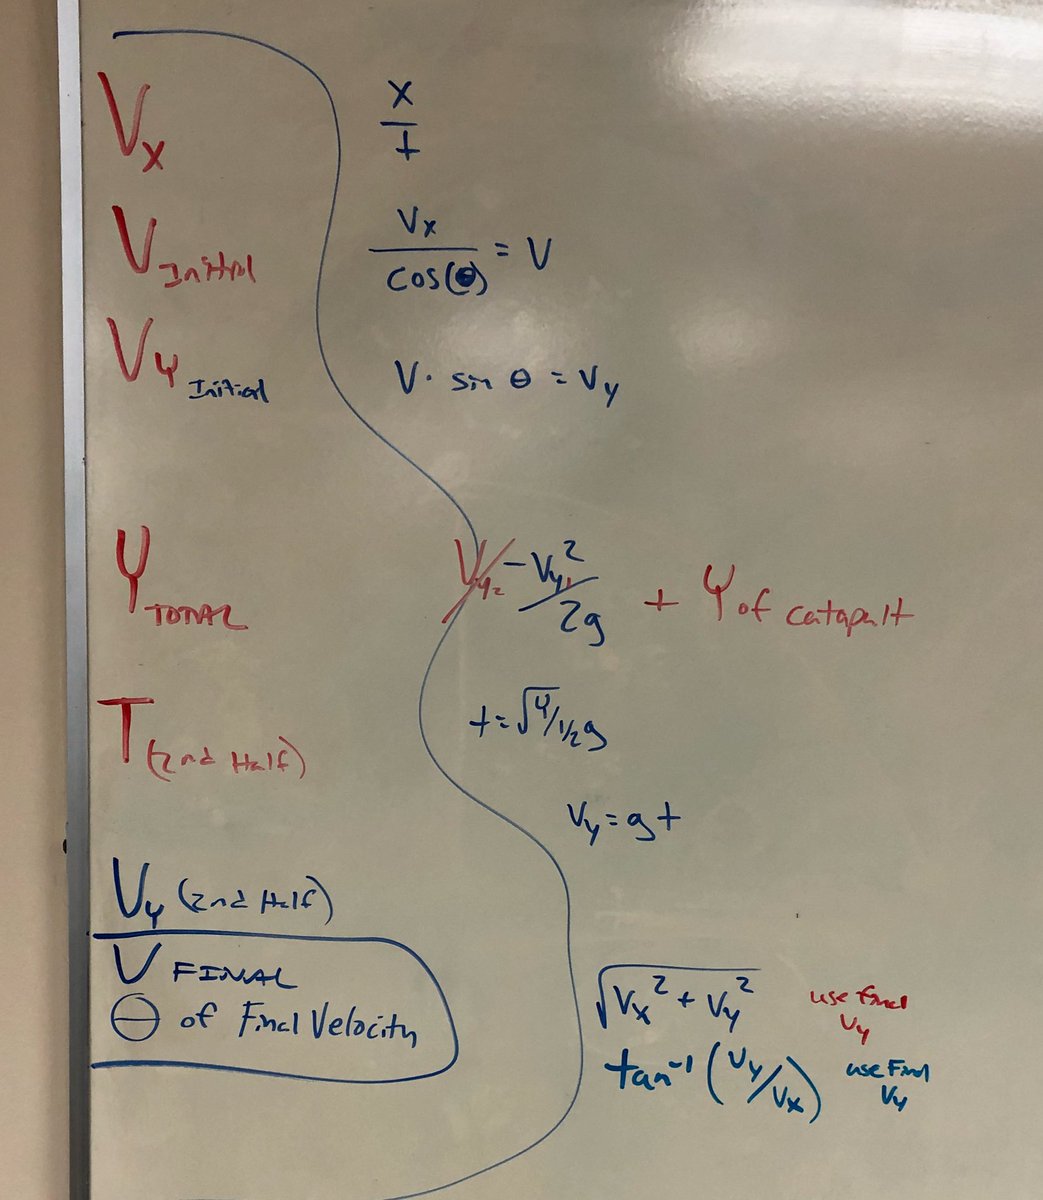 Vx x/t
V Initial Vx/cos(θ) = V
Vy Initial V· sin θ = Vy
Y TOTAL Vy₂ -Vy₁²/2g + Y of catapult
T (2nd Half) t=√Y/1/2g
Vy=gt
Vy (2nd Half)
V FINAL √Vx² + Vy² use final Vy
θ of Final Velocity tan⁻¹ (Vy/Vx) use Final Vy